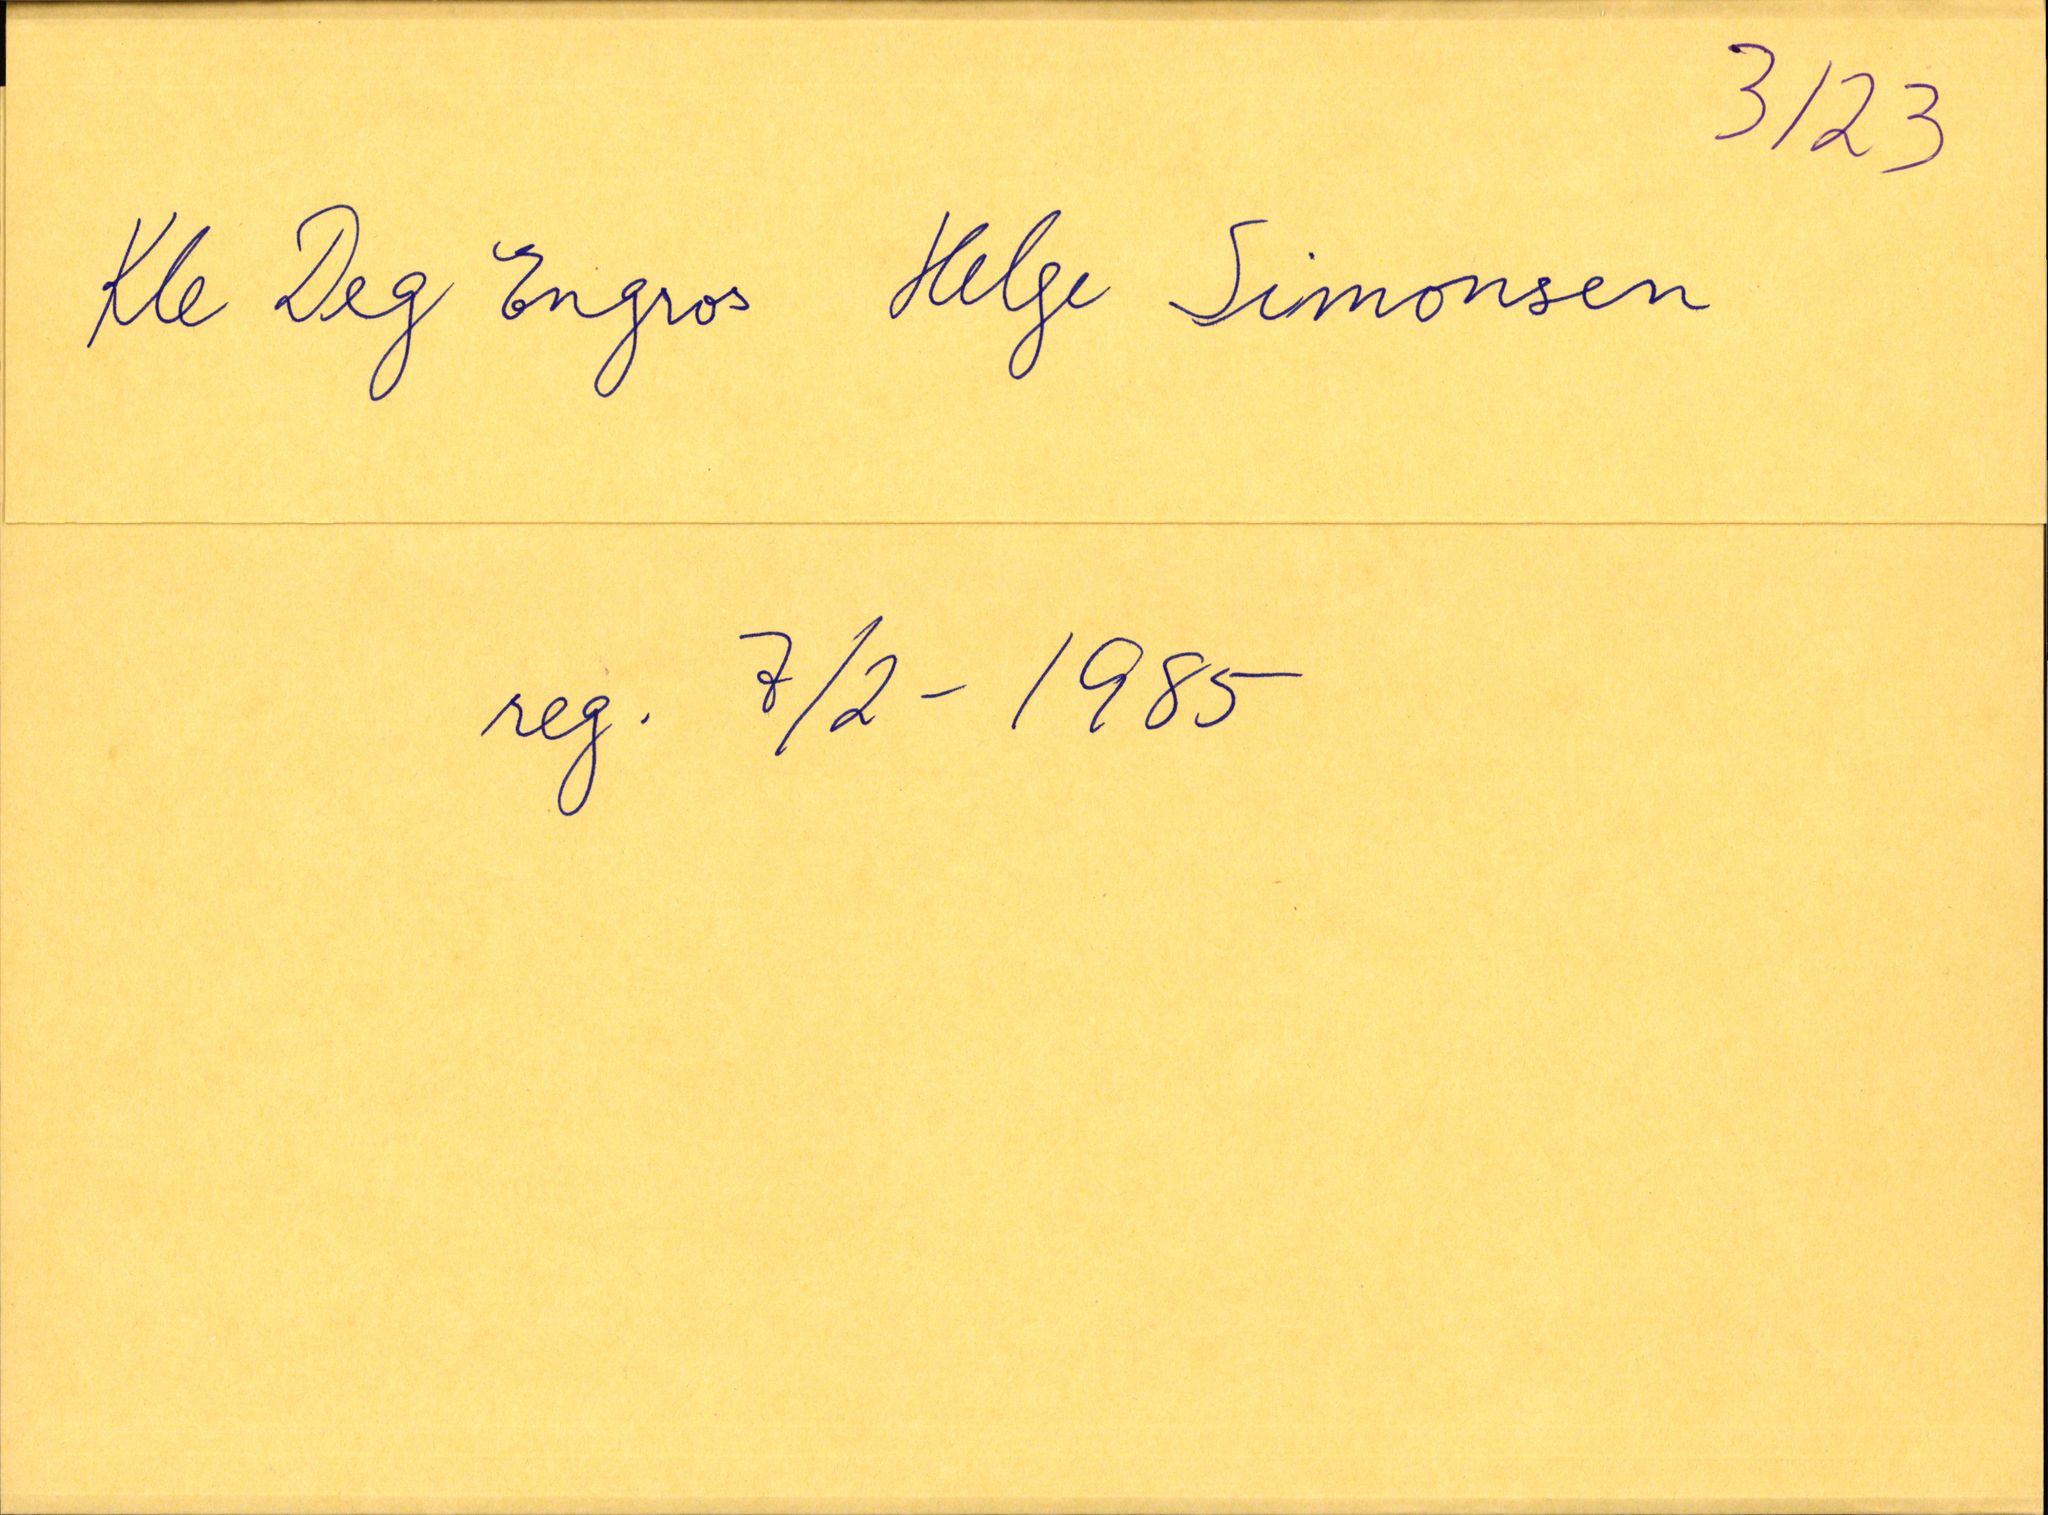 3123
Kle Deg Engros Helge Simonsen
reg. 7/2 - 1985